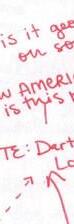 is it geo
on so
W AMERIC
is this
TE: Dart
Lo